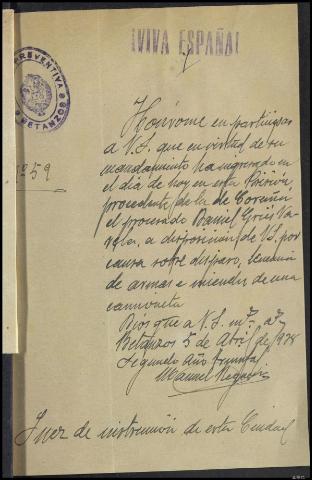 ¡VIVA ESPAÑA!
PREVENTIVA
BETANZOS
Nº 59
Hónrome en participar
a V.S. que en virtud de su
mandamiento ha ingresado en
el día de hoy en esta Prisión,
procedente de la de Coruña
el procesado Daniel
a disposición de V.S. por
causa sobre disparo, tenencia
de armas e incendio de una
camioneta
Dios gue a V.S. mª. aª
Betanzos 5 de Abril de 1938
Segundo Año Triunfal
Manuel
Juez de instrucción de esta Ciudad